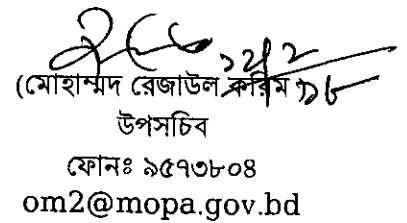 (মোহাম্মদ রেজাউল করিম)
উপসচিব
ফোনঃ ৯৫৭৩৮০৪
om2@mopa.gov.bd